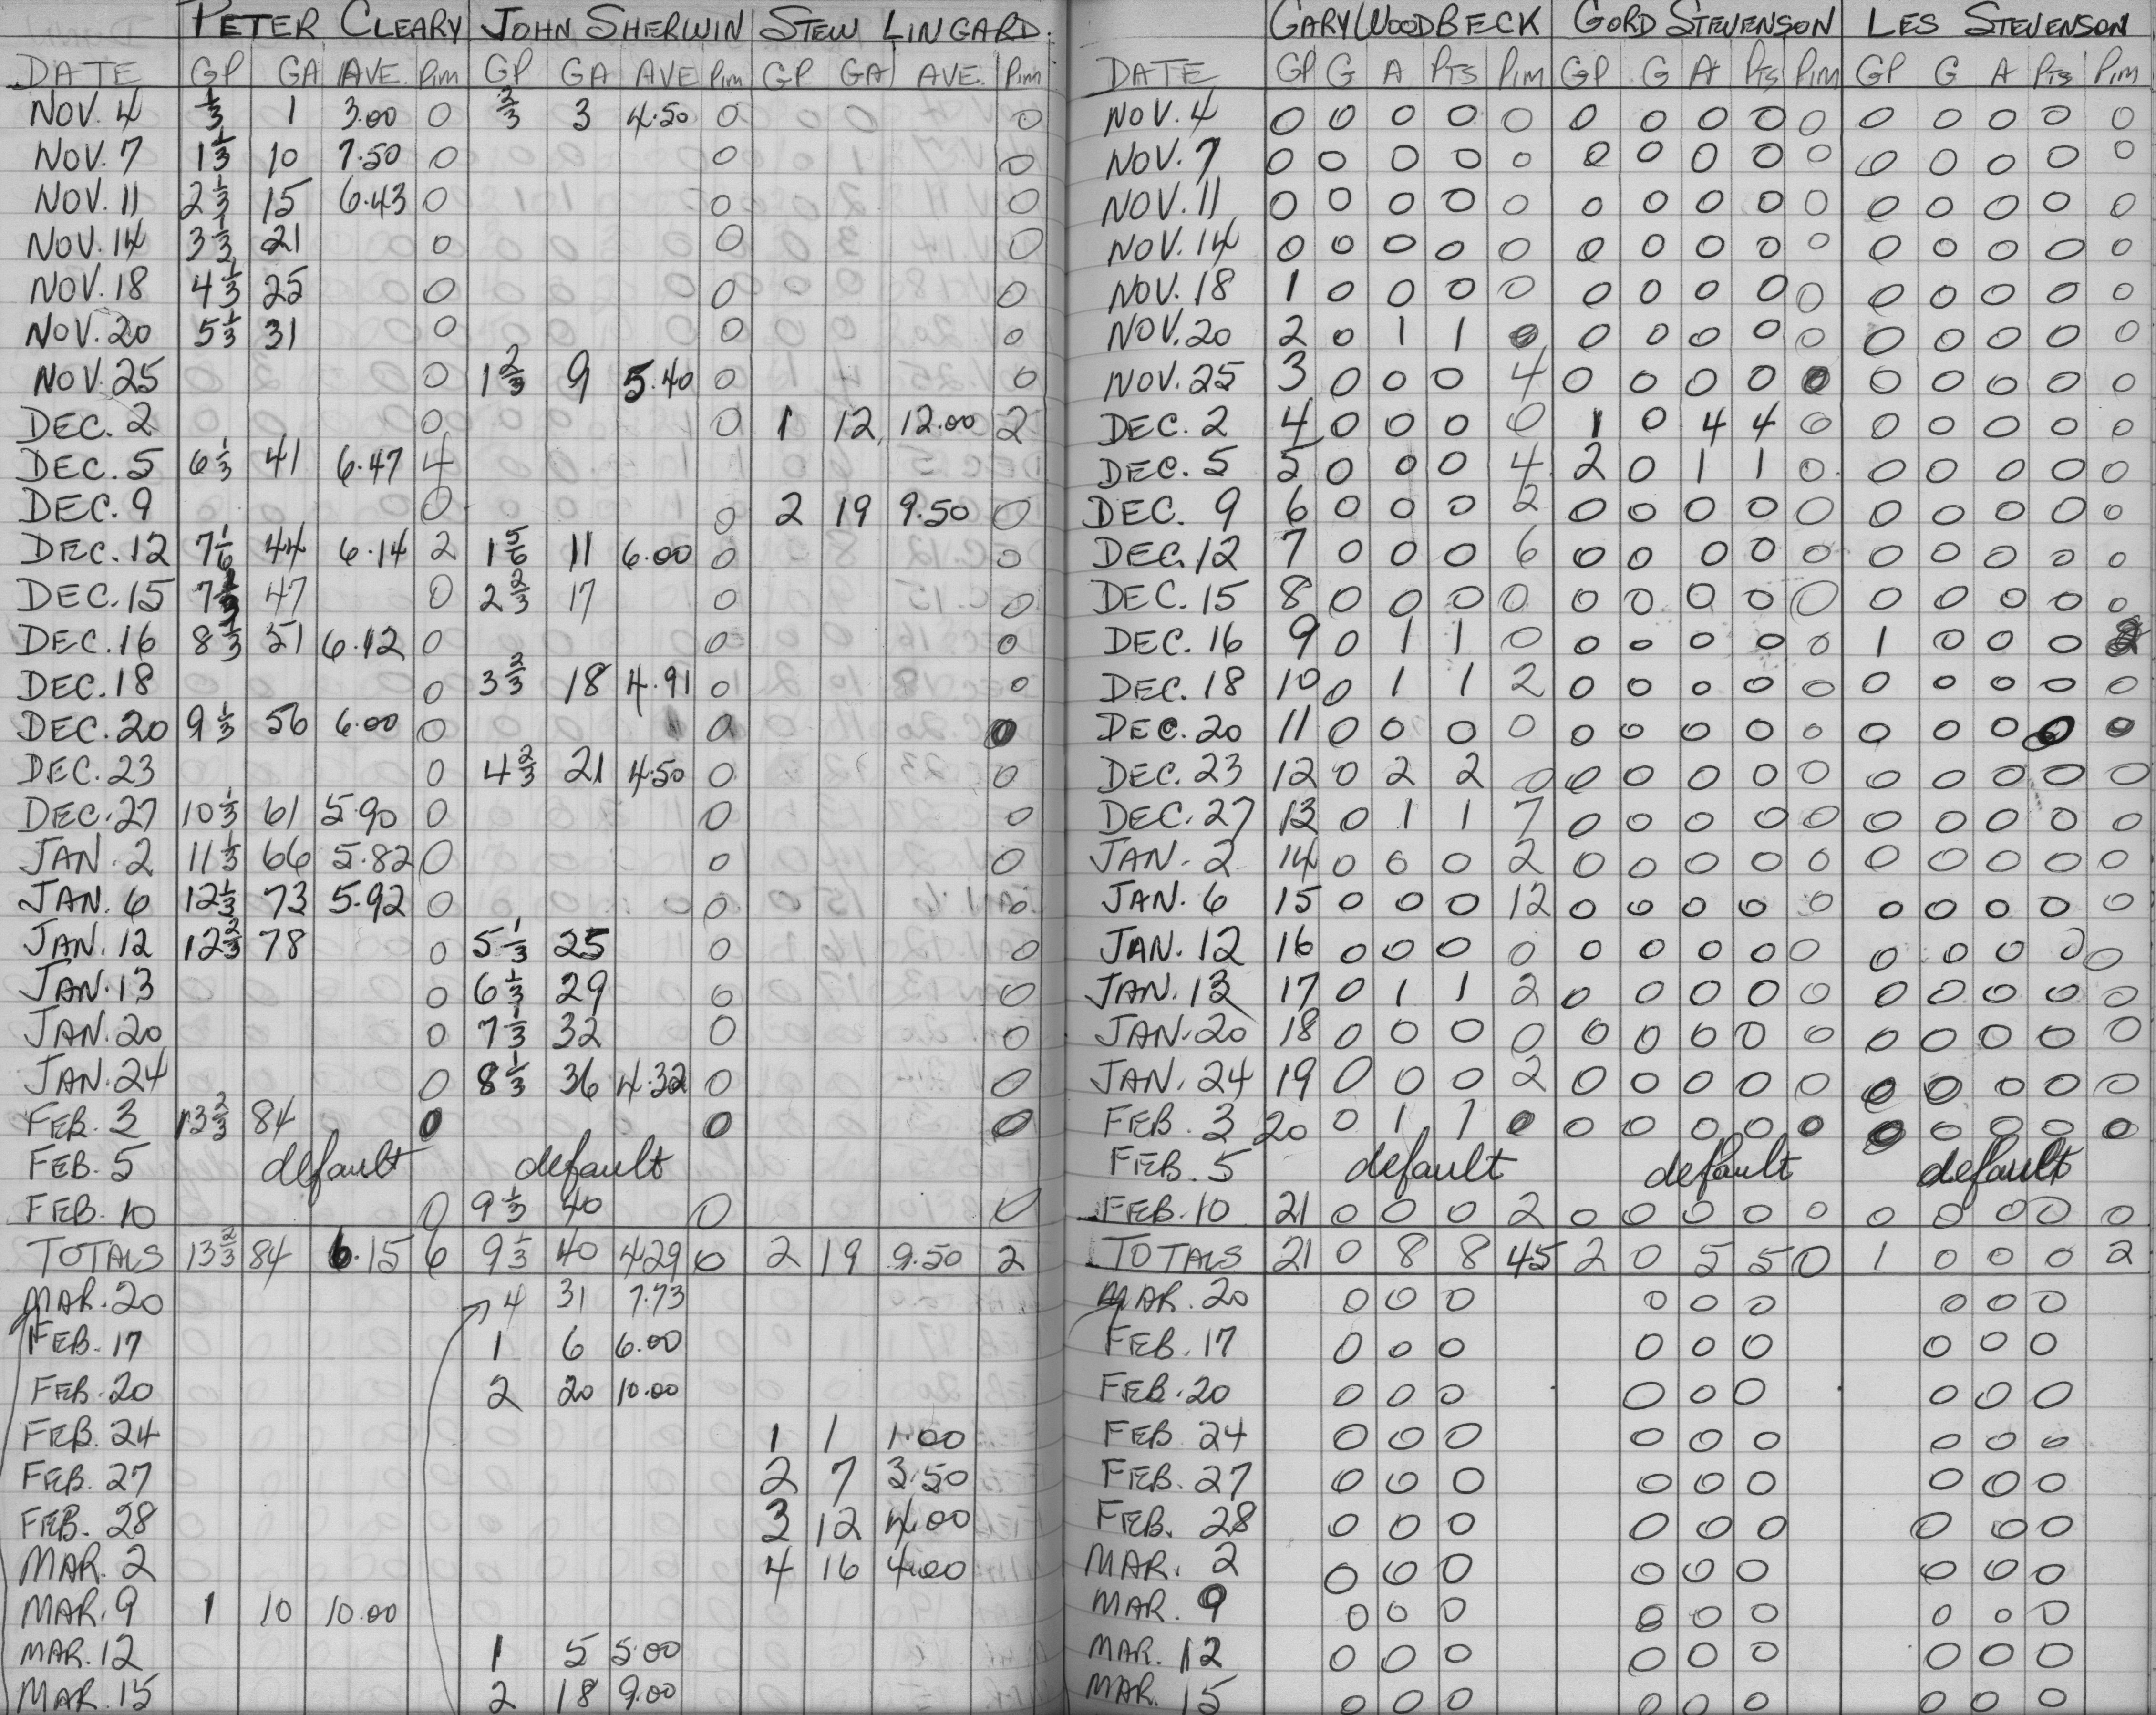 PETER CLEARY JOHN SHERWIN STEW LINGARD.
DATE GP GA AVE. Pim GP GA AVE Pim GP GA AVE. Pim
NOV. 4 1/3 1 3.00 0 2/3 3 4.50 0 0
NOV. 7 1 1/3 10 7.50 0 0 0
NOV. 11 2 1/3 15 6.43 0 0 0
NOV. 14 3 1/3 21 0 0 0
NOV. 18 4 1/3 25 0 0 0
NOV. 20 5 1/3 31 0 0 0
NOV. 25 0 1 2/3 9 5.40 0 0
DEC. 2 0 0 1 12 12.00 2
DEC. 5 6 1/3 41 6.47 4
DEC. 9 0 0 2 19 9.50 0
DEC. 12 7 1/6 44 6.14 2 1 5/6 11 6.00 0 0
DEC. 15 7 47 0 2 2/3 17 0 0
DEC. 16 8 1/3 51 6.12 0 0 0
DEC. 18 0 3 2/3 18 4.91 0 0
DEC. 20 9 1/3 56 6.00 0 0 0
DEC. 23 0 4 2/3 21 4.50 0 0
DEC. 27 10 1/3 61 5.90 0 0 0
JAN. 2 11 1/3 66 5.82 0 0 0
JAN. 6 12 1/3 73 5.92 0 0 0
JAN. 12 12 2/3 78 0 5 1/3 25 0 0
JAN. 13 0 6 1/3 29 0 0
JAN. 20 0 7 1/3 32 0 0
JAN. 24 0 8 1/3 36 4.32 0 0
FEB. 3 13 2/3 84 0 0 0
FEB. 5 default default
FEB. 10 0 9 1/3 40 0 0
TOTALS 13 2/3 84 6.15 6 9 1/3 40 4.29 0 2 19 9.50 2
MAR. 20 4 31 7.73
FEB. 17 1 6 6.00
FEB. 20 2 20 10.00
FEB. 24 1 1 1.00
FEB. 27 2 7 3.50
FEB. 28 3 12 4.00
MAR. 2 4 16 4.00
MAR. 9 1 10 10.00
MAR. 12 1 5 5.00
MAR. 15 2 18 9.00
GARY WOODBECK GORD STEVENSON LES STEVENSON
DATE GP G A Pts Pim GP G A Pts Pim GP G A Pts Pim
NOV. 4 0 0 0 0 0 0 0 0 0 0 0 0 0 0 0
NOV. 7 0 0 0 0 0 0 0 0 0 0 0 0 0 0 0
NOV. 11 0 0 0 0 0 0 0 0 0 0 0 0 0 0 0
NOV. 14 0 0 0 0 0 0 0 0 0 0 0 0 0 0 0
NOV. 18 1 0 0 0 0 0 0 0 0 0 0 0 0 0 0
NOV. 20 2 0 1 1 0 0 0 0 0 0 0 0 0 0 0
NOV. 25 3 0 0 0 4 0 0 0 0 0 0 0 0 0 0
DEC. 2 4 0 0 0 0 1 0 4 4 0 0 0 0 0 0
DEC. 5 5 0 0 0 4 2 0 1 1 0 0 0 0 0 0
DEC. 9 6 0 0 0 2 0 0 0 0 0 0 0 0 0 0
DEC. 12 7 0 0 0 6 0 0 0 0 0 0 0 0 0 0
DEC. 15 8 0 0 0 0 0 0 0 0 0 0 0 0 0 0
DEC. 16 9 0 1 1 0 0 0 0 0 0 1 0 0 0 2
DEC. 18 10 0 1 1 2 0 0 0 0 0 0 0 0 0 0
DEC. 20 11 0 0 0 0 0 0 0 0 0 0 0 0 0 0
DEC. 23 12 0 2 2 0 0 0 0 0 0 0 0 0 0 0
DEC. 27 13 0 1 1 7 0 0 0 0 0 0 0 0 0 0
JAN. 2 14 0 0 0 2 0 0 0 0 0 0 0 0 0 0
JAN. 6 15 0 0 0 12 0 0 0 0 0 0 0 0 0 0
JAN. 12 16 0 0 0 0 0 0 0 0 0 0 0 0 0 0
JAN. 13 17 0 1 1 2 0 0 0 0 0 0 0 0 0 0
JAN. 20 18 0 0 0 0 0 0 0 0 0 0 0 0 0 0
JAN. 24 19 0 0 0 2 0 0 0 0 0 0 0 0 0 0
FEB. 3 20 0 1 1 0 0 0 0 0 0 0 0 0 0 0
FEB. 5 default default default
FEB. 10 21 0 0 0 2 0 0 0 0 0 0 0 0 0 0
TOTALS 21 0 8 8 45 2 0 5 5 0 1 0 0 0 2
MAR. 20 0 0 0 0 0 0 0 0 0
FEB. 17 0 0 0 0 0 0 0 0 0
FEB. 20 0 0 0 0 0 0 0 0 0
FEB 24 0 0 0 0 0 0 0 0 0
FEB. 27 0 0 0 0 0 0 0 0 0
FEB. 28 0 0 0 0 0 0 0 0 0
MAR. 2 0 0 0 0 0 0 0 0 0
MAR. 9 0 0 0 0 0 0 0 0 0
MAR. 12 0 0 0 0 0 0 0 0 0
MAR. 15 0 0 0 0 0 0 0 0 0